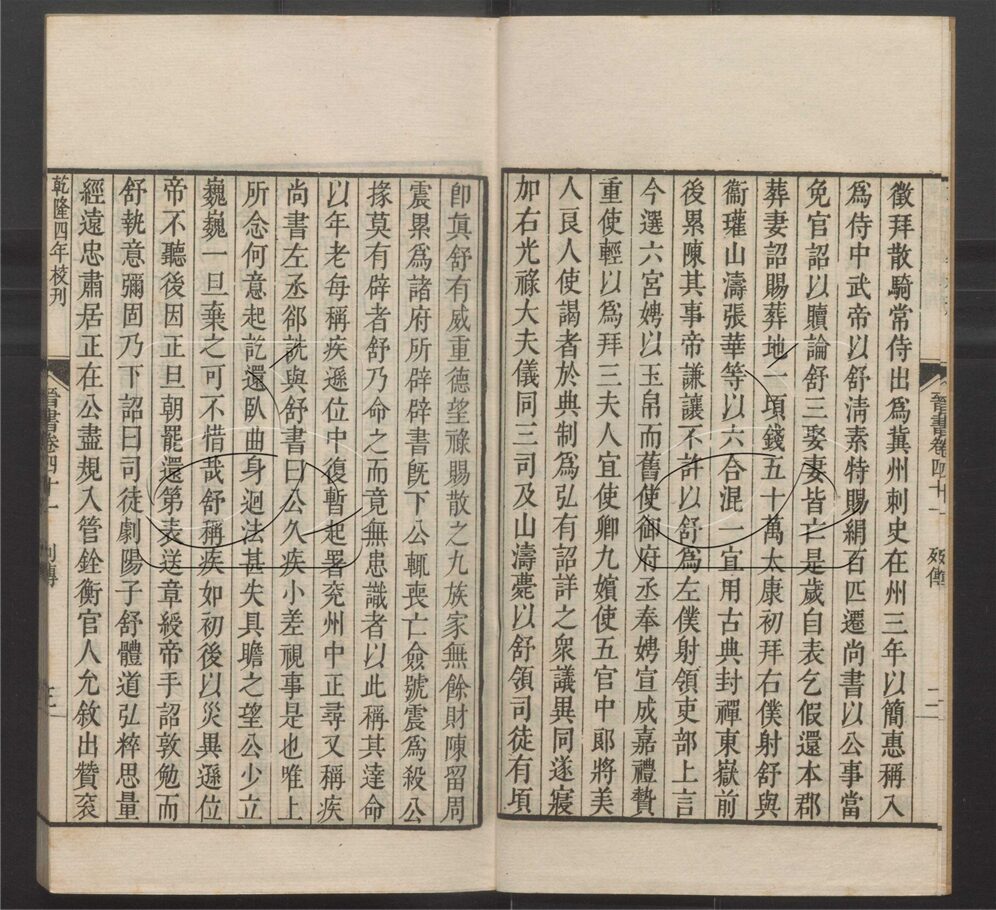 徵拜散騎常侍出爲冀州刺史在州三年以簡惠稱入
爲侍中武帝以舒淸素特賜絹百匹遷尚書以公事當
免官詔以贖論舒三娶妻皆亡是歲自表乞假還本郡
葬妻詔賜葬地一頃錢五十萬太康初拜右僕射舒與
衞瓘山濤張華等以六合混一宜用古典封禪東嶽前
後累陳其事帝謙讓不許以舒爲左僕射領吏部上言
今選六宮娉以玉帛而舊使御府丞奉娉宣成嘉禮贄
重使輕以爲拜三夫人宜使卿九嬪使五官中郞將美
人良人使謁者於典制爲弘有詔詳之衆議異同遂寢
加右光祿大夫儀同三司及山濤薨以舒領司徒有頃
晉書卷四十一 列傳 二
卽眞舒有威重德望祿賜散之九族家無餘財陳留周
震累爲諸府所辟辟書旣下公輒喪亡僉號震爲殺公
掾莫有辟者舒乃命之而竟無患識者以此稱其達命
以年老每稱疾遜位中復暫起署兖州中正尋又稱疾
尚書左丞郤詵與舒書曰公久疾小差視事是也唯上
所念何意起訖還臥曲身迴法甚失具瞻之望公少立
巍巍一旦棄之可不惜哉舒稱疾如初後以災異遜位
帝不聽後因正旦朝罷還第表送章綬帝手詔敦勉而
舒執意彌固乃下詔曰司徒劇陽子舒體道弘粹思量
經遠忠肅居正在公盡規入管銓衡官人允敘出贊衮
乾隆四年校刊
晉書卷四十一 列傳 三